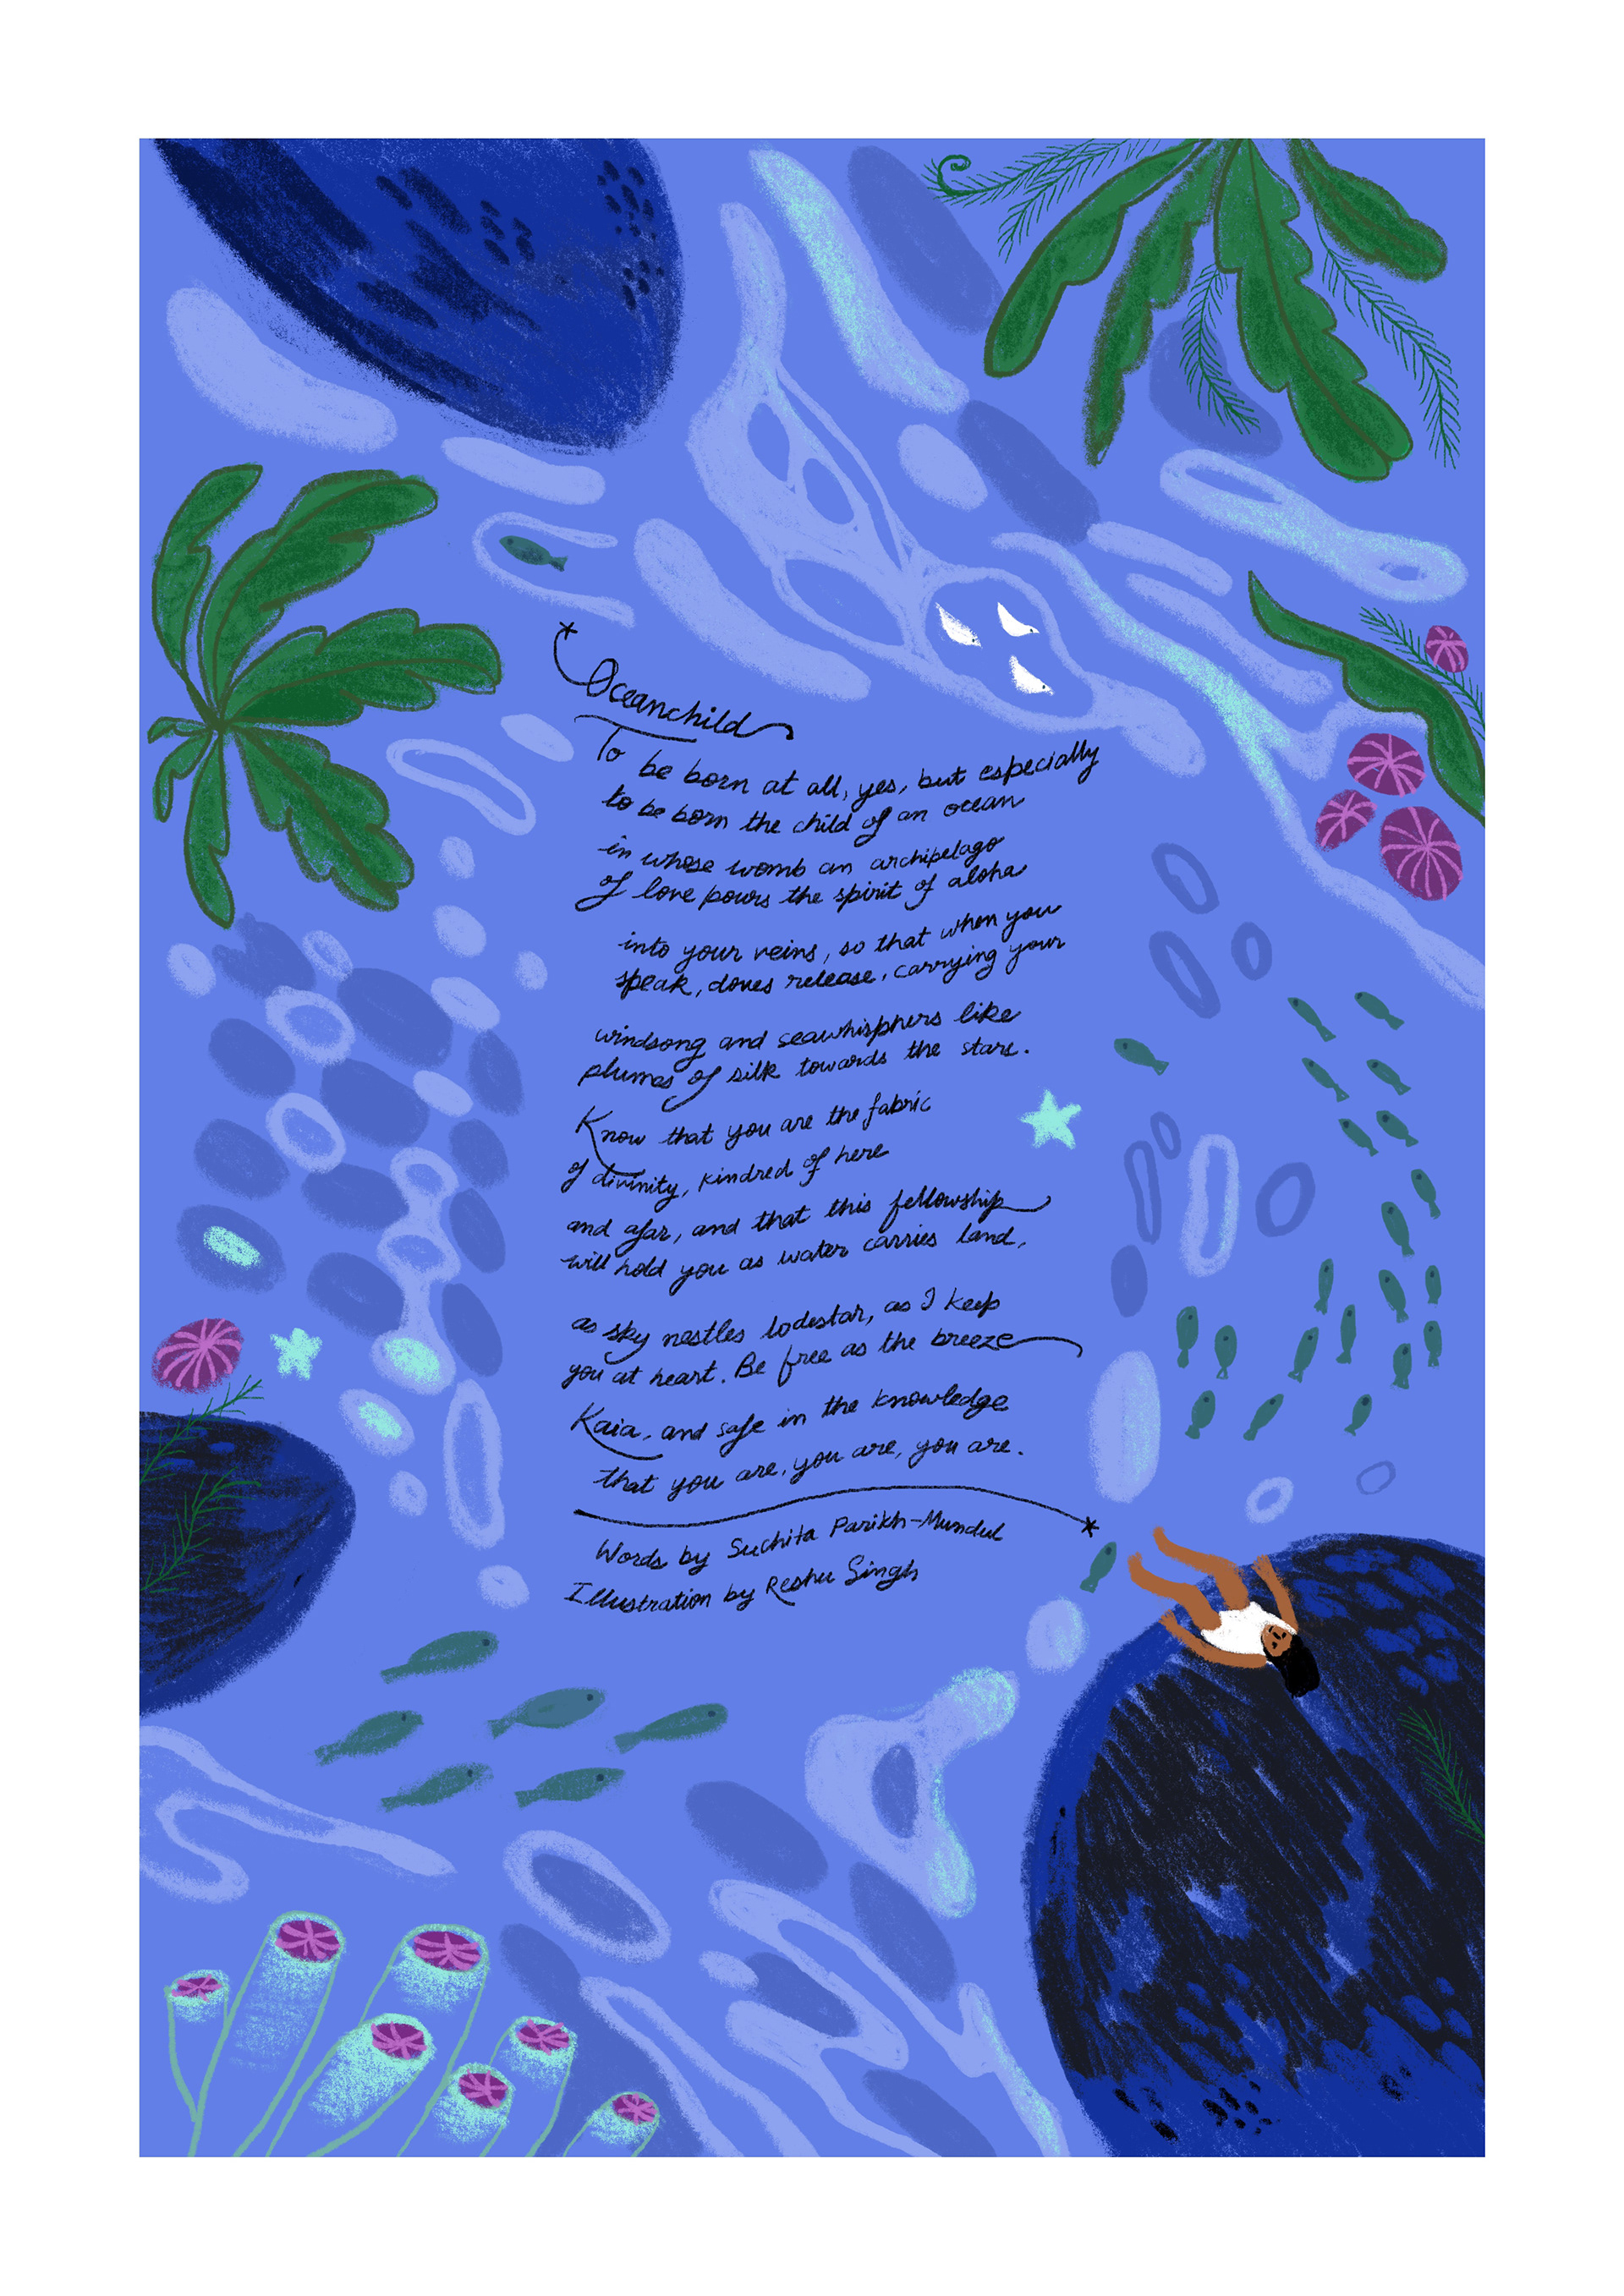 Oceanchild
To be born at all, yes, but especially
to be born the child of an ocean
in whose womb an archipelago
of love pours the spirit of aloha
into your veins, so that when you
speak, doves release, carrying your
windsong and seawhisphers like
plumes of silk towards the stars.
Know that you are the fabric
of divinity, kindred of here
and afar, and that this fellowship
will hold you as water carries land,
as sky nestles lodestar, as I keep
you at heart. Be free as the breeze
Kaia, and safe in the knowledge
that you are, you are, you are.
Words by Suchita Parikh-Mundul
Illustration by Reshu Singh